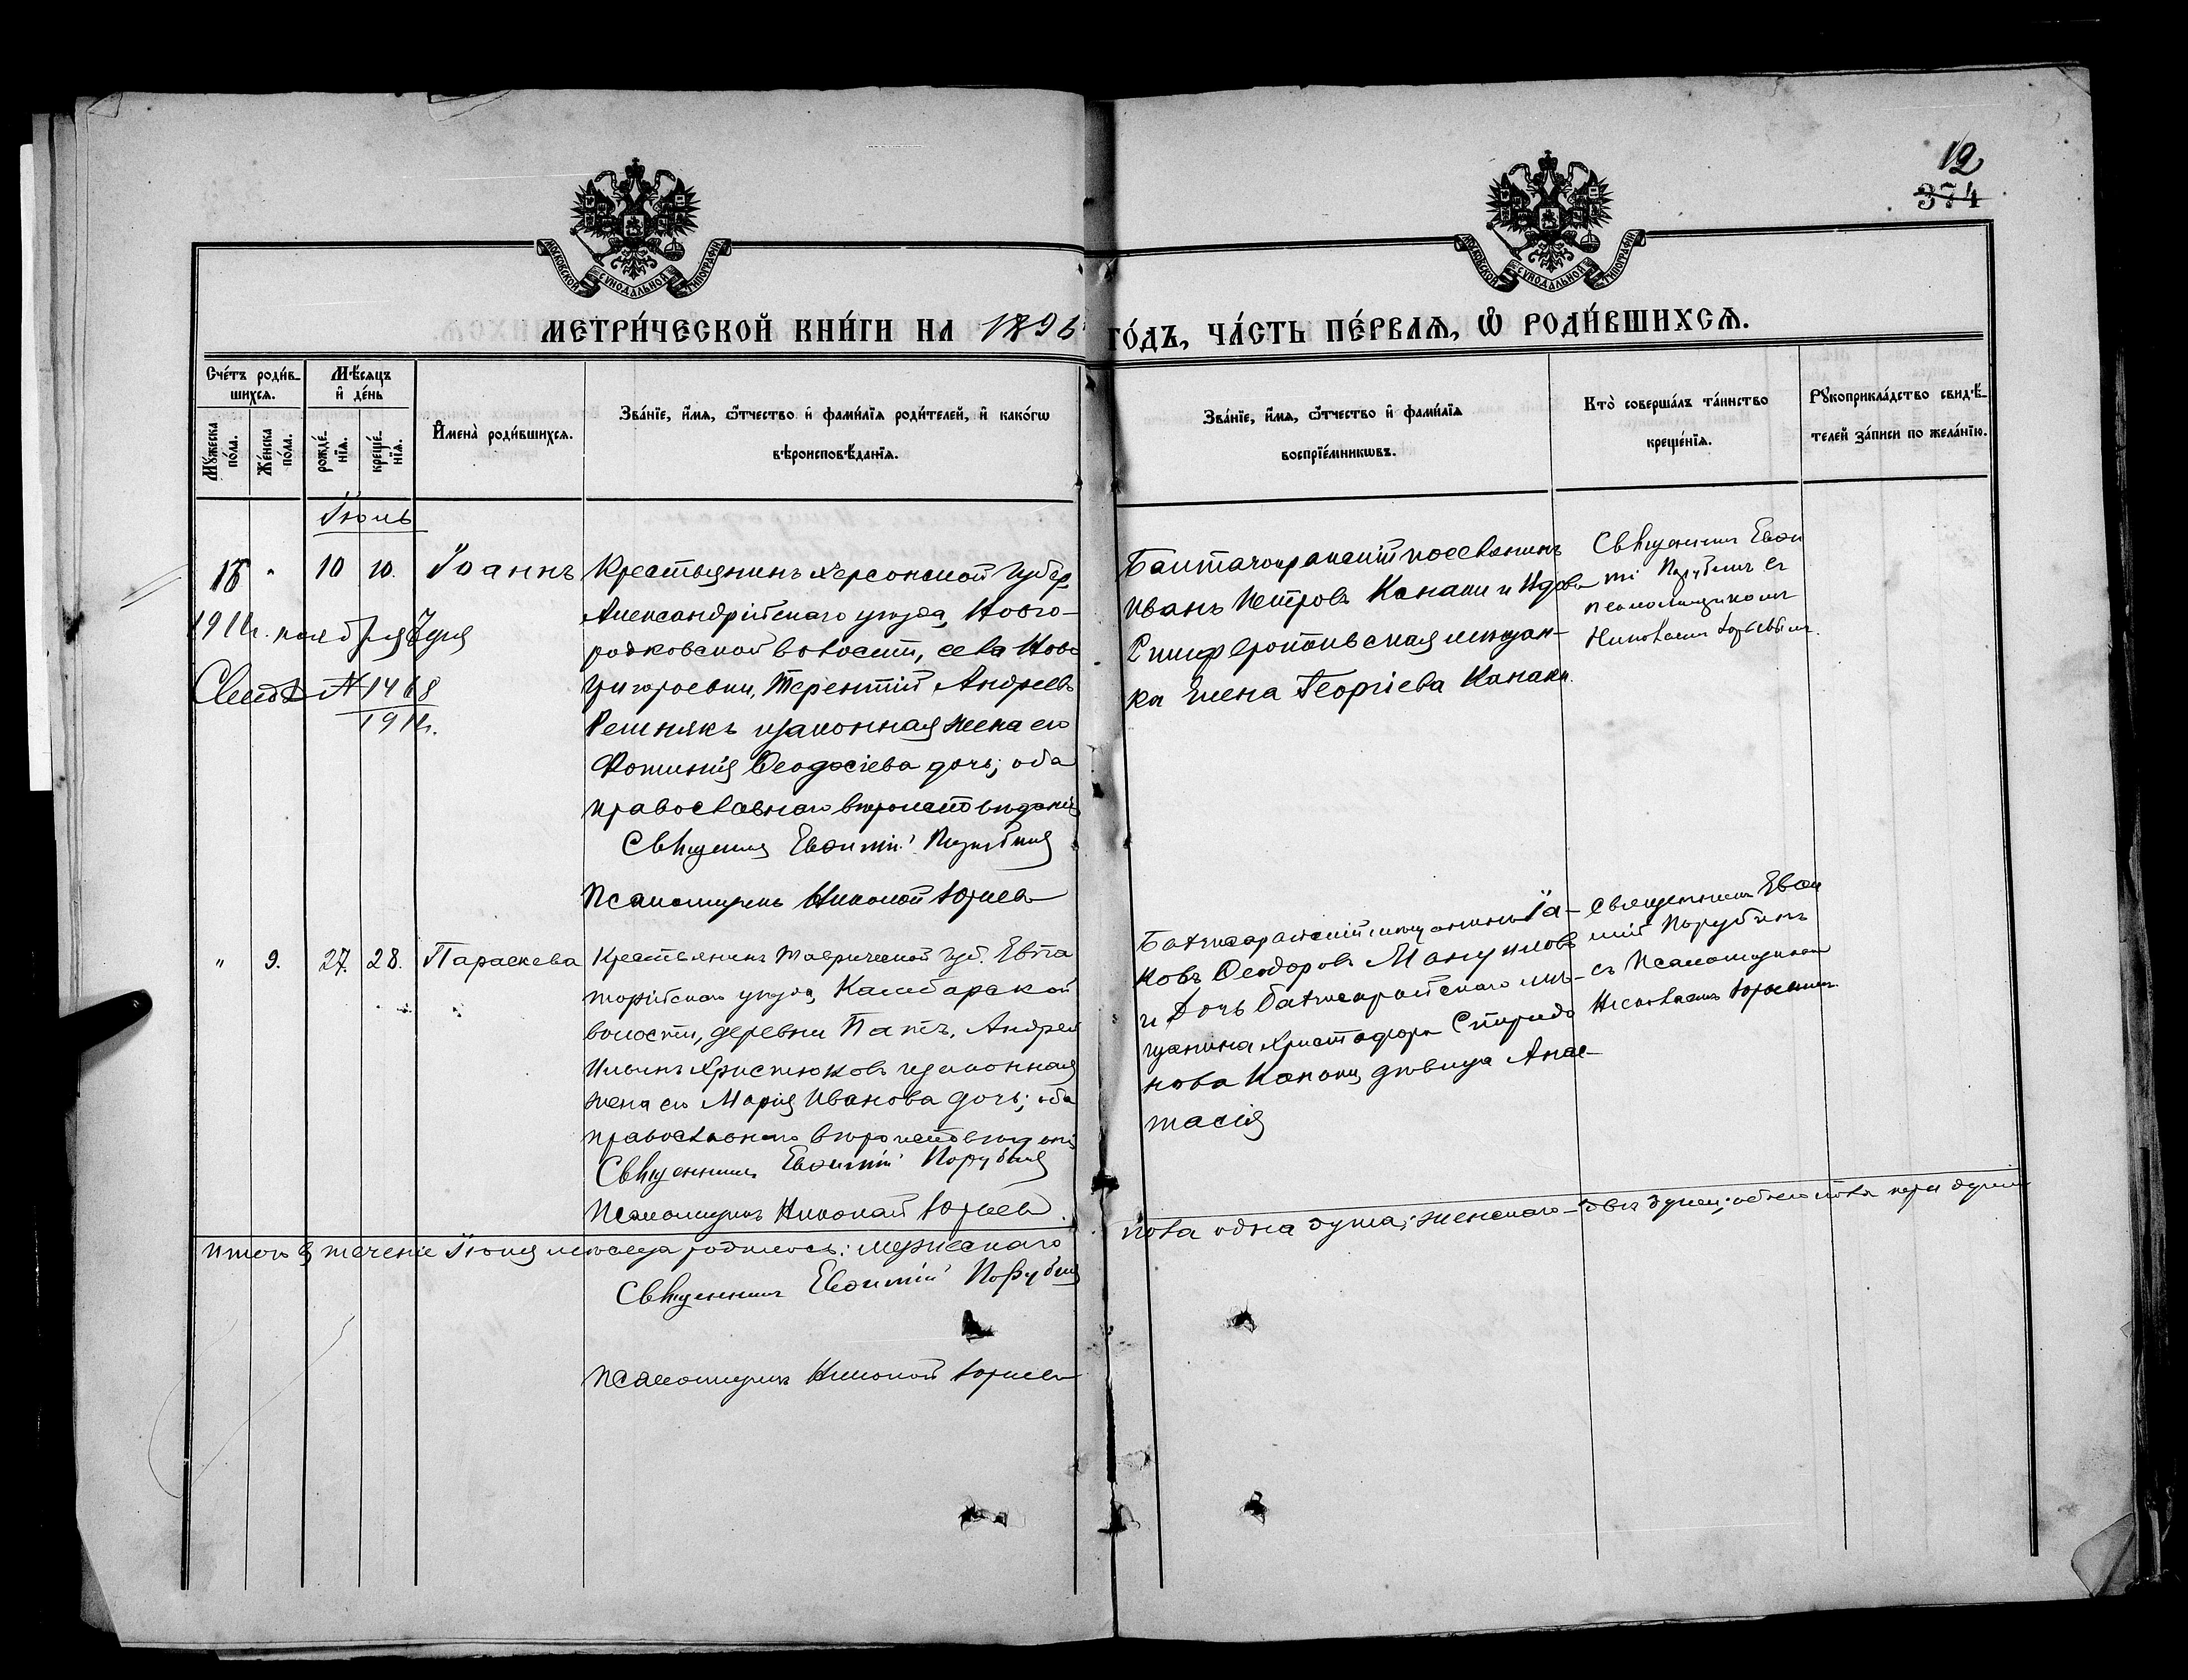 12
374
МОСКОВСКОЙ СѴНОДАЛЬНОЙ ТИПОГРАФІИ
МОСКОВСКОЙ СѴНОДАЛЬНОЙ ТИПОГРАФІИ
МЕТРИ́ЧЕСКОЙ КНИ́ГИ НА 1896 ГО́ДЪ, ЧА́СТЬ ПЕ́РВАЯ, Ѡ РОДИ́ВШИХСЯ.
Сче́тъ роди́в-
шихся.
Мꙋжеска по́ла.
Же́нска по́ла.
Мѣ́сяцъ
и҆ де́нь
рожде́-
нїя.
креще́-
нїя.
И҆мена̀ роди́вшихся.
Зва́нїе, и҆́мя, ѻ҆́тчество и҆ фами́лїя роди́телей, и҆ како́гѡ
вѣроисповѣ́данїя.
Зва́нїе, и҆́мя, ѻ҆́тчество и҆ фами́лїя
воспрїе́мникѡвъ.
Кто̀ соверша́лъ та́инство
креще́нїя.
Рꙋкоприкла́дство свидѣ́-
телей за́писи по жела́нїю.
Іюль
" 10 10. Іоаннъ
Крестьянинъ Херсонской Губер.
Александрійскаго уѣзда, Ново-
родковской волости, села Ново
григорьевки, Терентій Андреевъ
Решнякъ изаконная жена его
Фотинія Ѳеодосіева дочь; оба
православнаго вѣроисповѣданія
Священникъ Евѳимій
Псаломщикъ Николай Юрьевъ
1911г. ноября 7 дня
Свид. № 1468
1911г.
Иванъ Петровъ Канаки и
Симферопольская мѣщан-
ка Елена Георгіева Канаки.
Священникъ Евѳи
мій Порубинъ съ
псаломщикомъ
Николаемъ Юрьевымъ.
" 9. 27. 28. Параскева
Крестьянинъ Таврической Губ. Евпа
торійскаго уѣзда, Камбарской
волости, деревни Патъ, Андрей
Ильинъ Христюковъ изаконная
жена его Марія Иванова дочь; оба
православнаго вѣроисповѣданія
Священникъ Евѳимій Порубинъ
Псаломщикъ Николай Юрьевъ
Бахчисарайскій мѣщанинъ Іа-
ковъ Ѳеодоровъ
и Дочь Бахчисарайскаго мѣ-
щанина Христофора Спиридо
нова Канаки дѣвица Анас-
тасія
Священникъ Евѳи
мій Порубинъ
съ Псаломщикомъ
Николаемъ Юрьевымъ
Итого въ теченіе Іюля мѣсяца родилось: мужескаго
пола одна душа; женскаго - двѣ души; обоего пола три души
Священникъ Евѳимій Порубинъ
Псаломщикъ Николай Юрьевъ